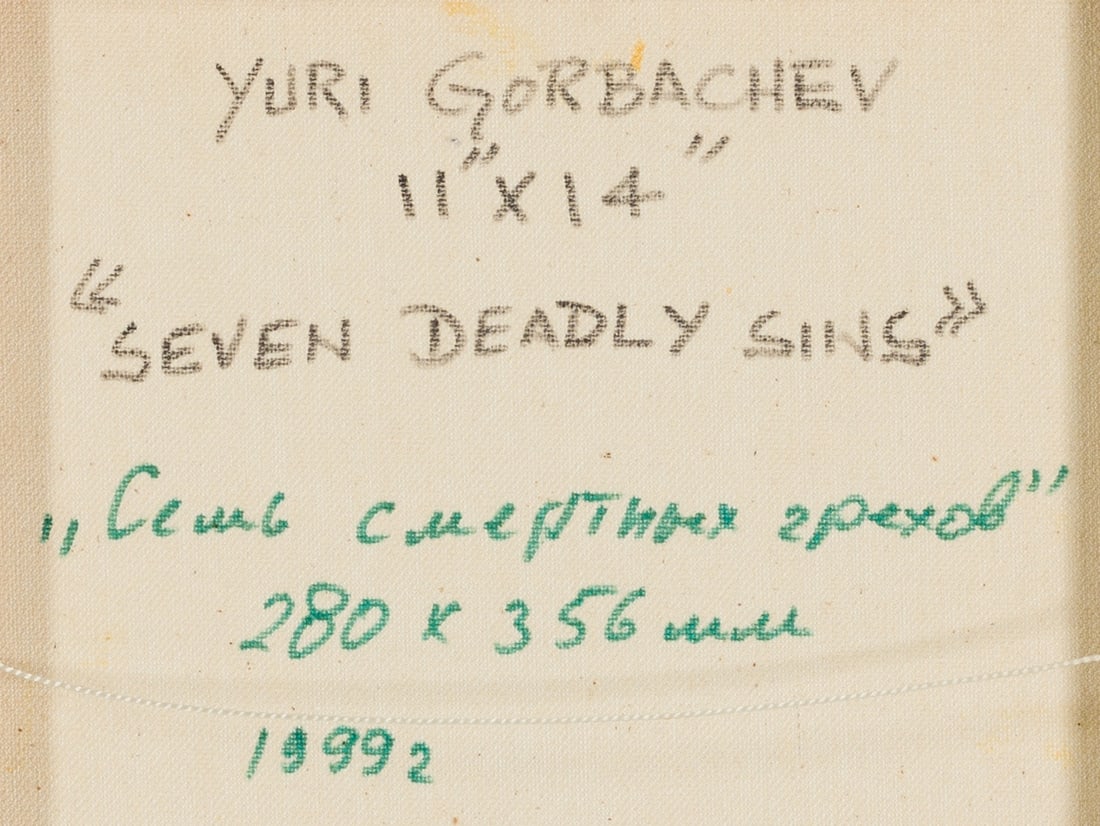 YURI GORBACHEV
11" X 14"
"SEVEN DEADLY SINS"
„Семь смертных грехов"
280 x 356 мм
1999г